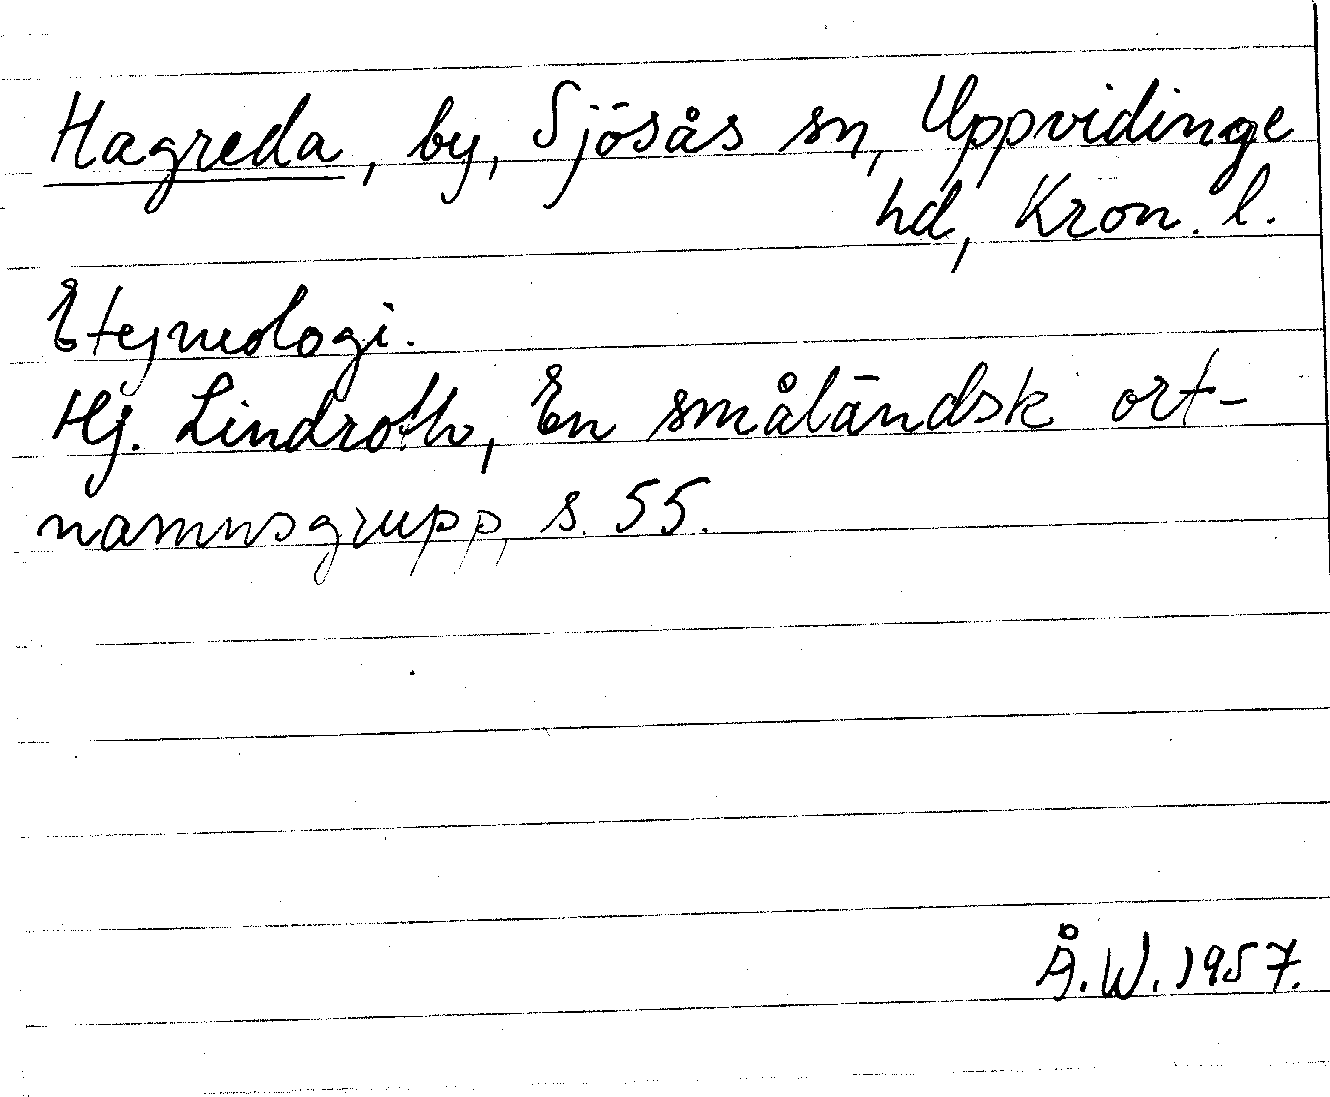 Hagreda, by, Sjösås sn, Uppvidinge
hd, Kron. l.
Etymologi.
Hj. Lindroth, En småländsk ort-
namnsgrupp, s. 55.
Å.W. 1957.